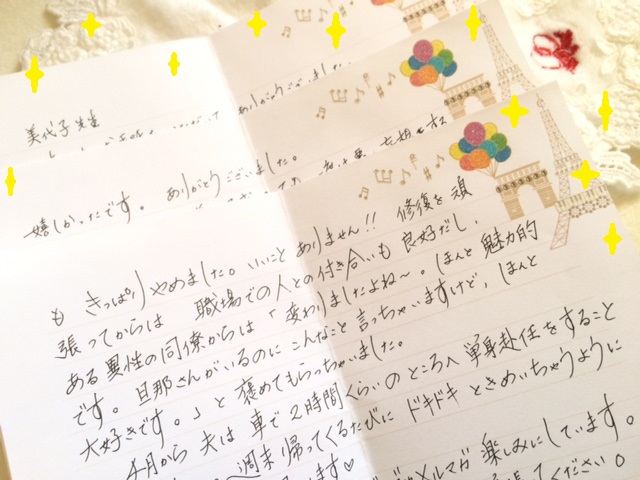 美代子先生
ありがとうございました。
嬉しかったです。 ありがとうございました。
も きっぱりやめました。いいこと ありません!! 修復を頑
張ってからは 職場での人との付き合いも 良好だし、
ある異性の同僚からは「変わりましたよね〜。ほんと 魅力的
です。旦那さんがいるのに こんなこと言っちゃいますけど、ほんと
大好きです。」と 褒めてもらっちゃいました。
4月から 夫は 車で2時間くらいの ところへ 単身赴任をすること
週末 帰ってくるたびに ドキドキ ときめいちゃうように
ます♡
メルマガ 楽しみにしています。
てください。